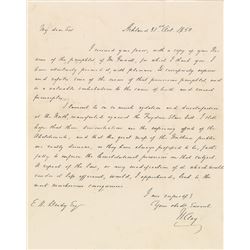 My dear Sir
Ashland 25th Oct. 1850
I received your favor, with a copy of your
of the pamphlet of Mr. for which I thank you. I
have attentively perused it, with pleasure. It conspicuously exposes
and refutes some of the errors of that pernicious pamphlet, and
is a valuable contribution to the cause of truth and sound
I lament to see so much agitation and dissatisfaction
at the North, manifested against the Fugitive Slave bill. I still
hope that these demonstrations are the expiring efforts of the
Abolitionists, and that the great body of the Northern public
are really sincere, as they have always professed to be, faith-
fully to enforce the Constitutional provision on that subject.
A repeal of the Law, or any modification of it which would
render it less efficient, would, I apprehend, lead to the
most mischievous consequences.
I am respectfully
Your ob. Servant
H. Clay
E. Esq.